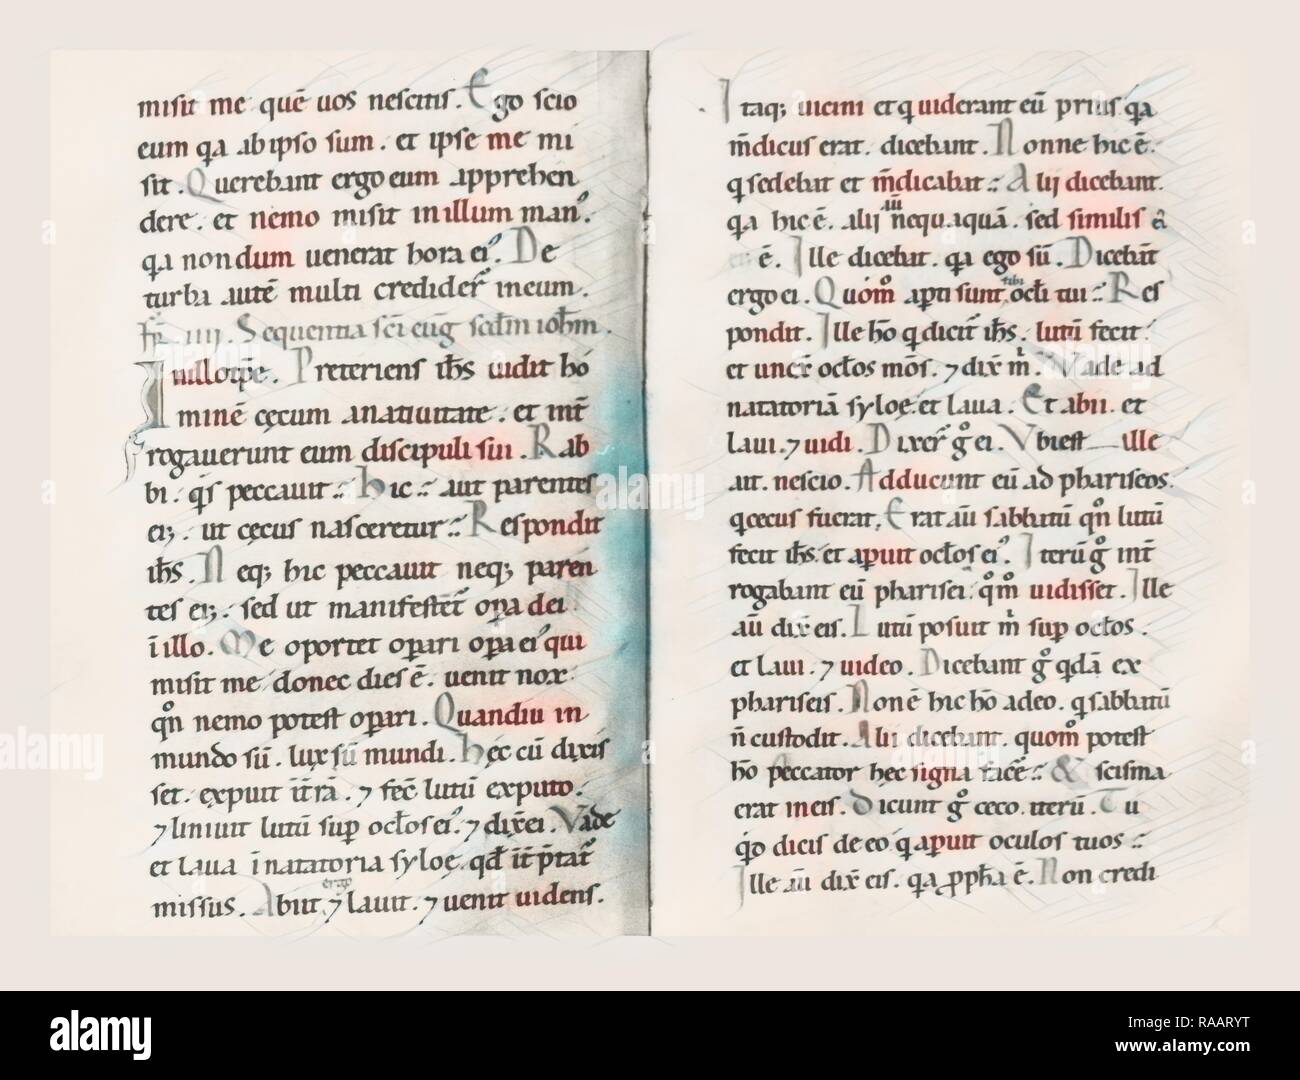 misit me quē uos nescitis. Ego scio
eum qa ab ipso sum. et ipse me mi
sit. Querebant ergo eum apprehen
dere. et nemo misit in illum man᷒.
qa nondum uenerat hora ei᷒. De
turba autē multi crediderᷣ in eum.
fr̄. iiij. Sequentia sc̄i eūg sc̄dm ioh̄m.
In illo tp̄e. Preteriens ih̄s uidit ho
minē cęcum a natiuitate. et int̄
rogauerunt eum discipuli sui. Rab
bi. q̄s peccauit. Hic. aut parentes
ei᷒. ut cęcus nasceretur. Respondit
ih̄s. Neq; hic peccauit neq; paren
tes ei᷒. sed ut manifestet᷑ oꝑa dei
ī illo. Me oportet oꝑari oꝑa ei᷒ qui
misit me donec dies ē. uenit nox
qn̄ nemo potest oꝑari. Quandiu in
mundo sū. lux sū mundi. Hęc cū dixis
set. expuit ī t̄rā. ⁊ fec̄ lutū ex puto.
⁊ liniuit lutū suꝑ oc̄los ei᷒. ⁊ dix̄ ei. Vade
et laua ī natatoria syloę. qd̄ īt̄p̄tat᷑
missus. Abiit ergo ⁊ lauit. ⁊ uenit uidens.
Itaq; uicini et q uiderant eū prius qa
m̄dicus erat. dicebant. Nonne hic ē.
q sedebat et m̄dicabat. Alij dicebant.
qa hic ē. alij aū nequaquā. sed similis ē
ei. Ille dicebat. qa ego sū. Dicebāt
ergo ei. Quom̊ aꝑti sunt tibi oc̄li tui. Res
pondit. Ille ho q dicit᷑ ih̄s. lutū fecit
et uncx̄ oc̄los mōs. ⁊ dix̄ m̊. Vade ad
natatoriā syloę. et laua. Et abii. et
laui. ⁊ uidi. Dixer̄ g̊ ei. Vbi est ille
ait. nescio. Adducunt eū ad phariseos.
q cecus fuerat. Erat aū sabbatū qn̄ lutū
fecit ih̄s. et aꝑuit oc̄los ei᷒. Iterū g̊ int̄
rogabant eū pharisei. q̊m̊ uidisset. Ille
aū dix̄ eis. Lutū posuit m̊ suꝑ oc̄los.
et laui. ⁊ uideo. Dicebant g̊ qdā ex
phariseis. Non ē hic ho a deo. q sabbatū
n̄ custodit. Alii dicebant. quom̊ potest
ho peccator hęc signa facē. & scisma
erat in eis. Dicunt g̊ ceco. iterū. Tu
qd dicis de eo q aꝑuit oculos tuos
Ille aū dix̄ eis. qa ꝓph̄a ē. Non credi
alamy
Image ID: RAARYT
www.alamy.com